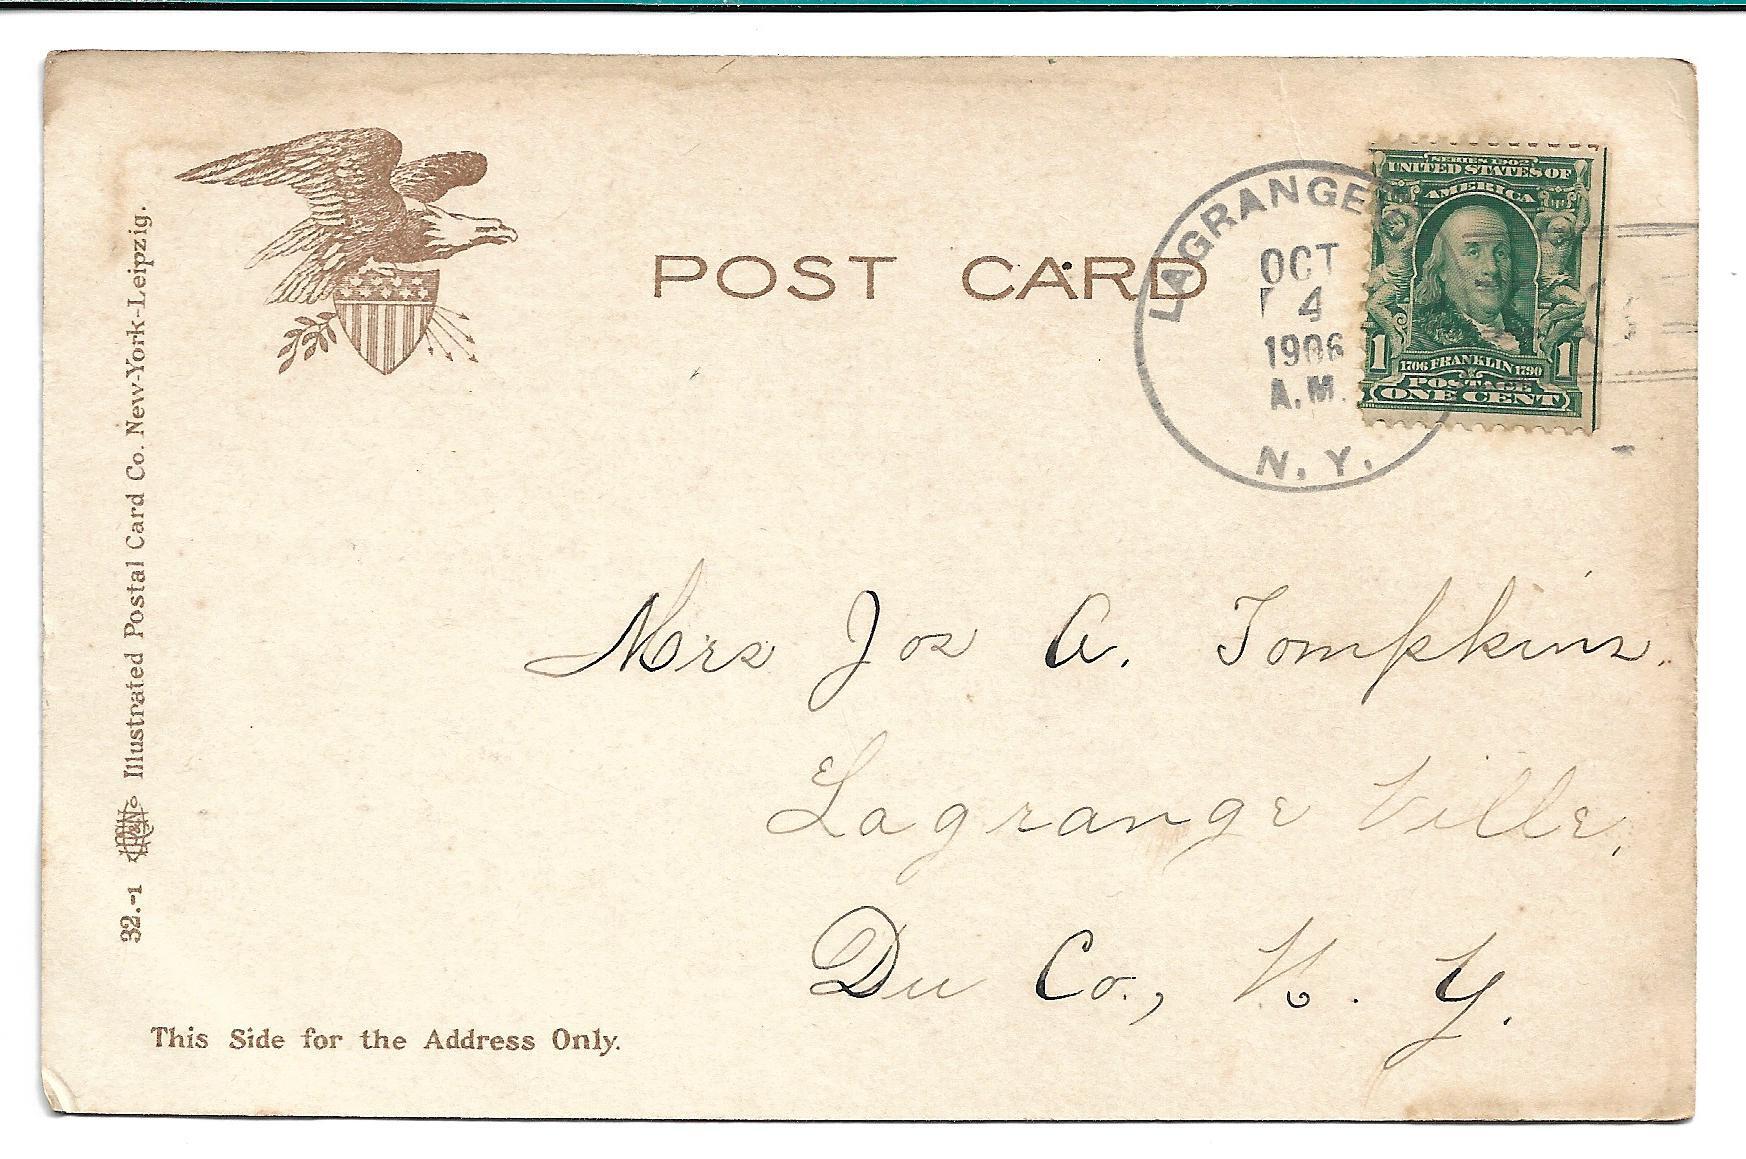 POST CARD
LAGRANGE
OCT
4
1906
A.M.
N.Y.
SERIES 1902
UNITED STATES OF
AMERICA
1 1706 FRANKLIN 1790 1
POSTAGE
ONE CENT
Mrs Jos A. Tompkins.
Lagrange Ville,
Du Co., N. Y.
32.-1 Illustrated Postal Card Co. New-York-Leipzig.
This Side for the Address Only.